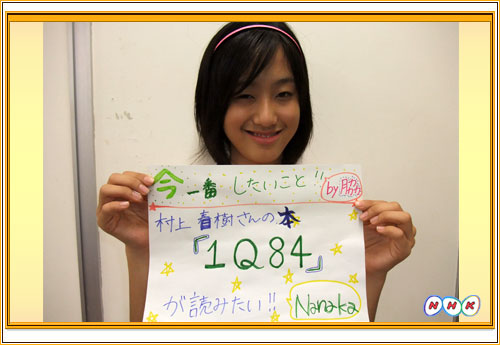 今一番したいこと!! by 脇
村上春樹さんの本
『1Q84』
が読みたい!! Nanaka
NHK